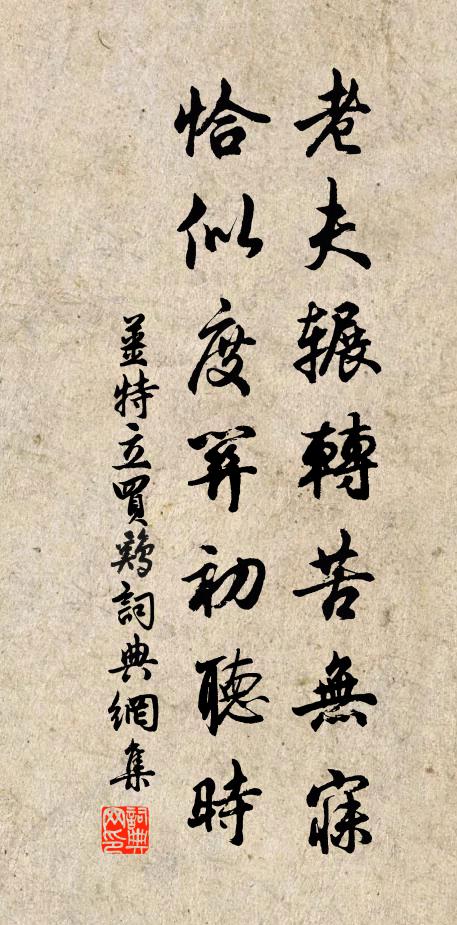 老夫輾轉苦無寐
恰似度關初聽時
薑特立買鷄詞典網集
詞典网印